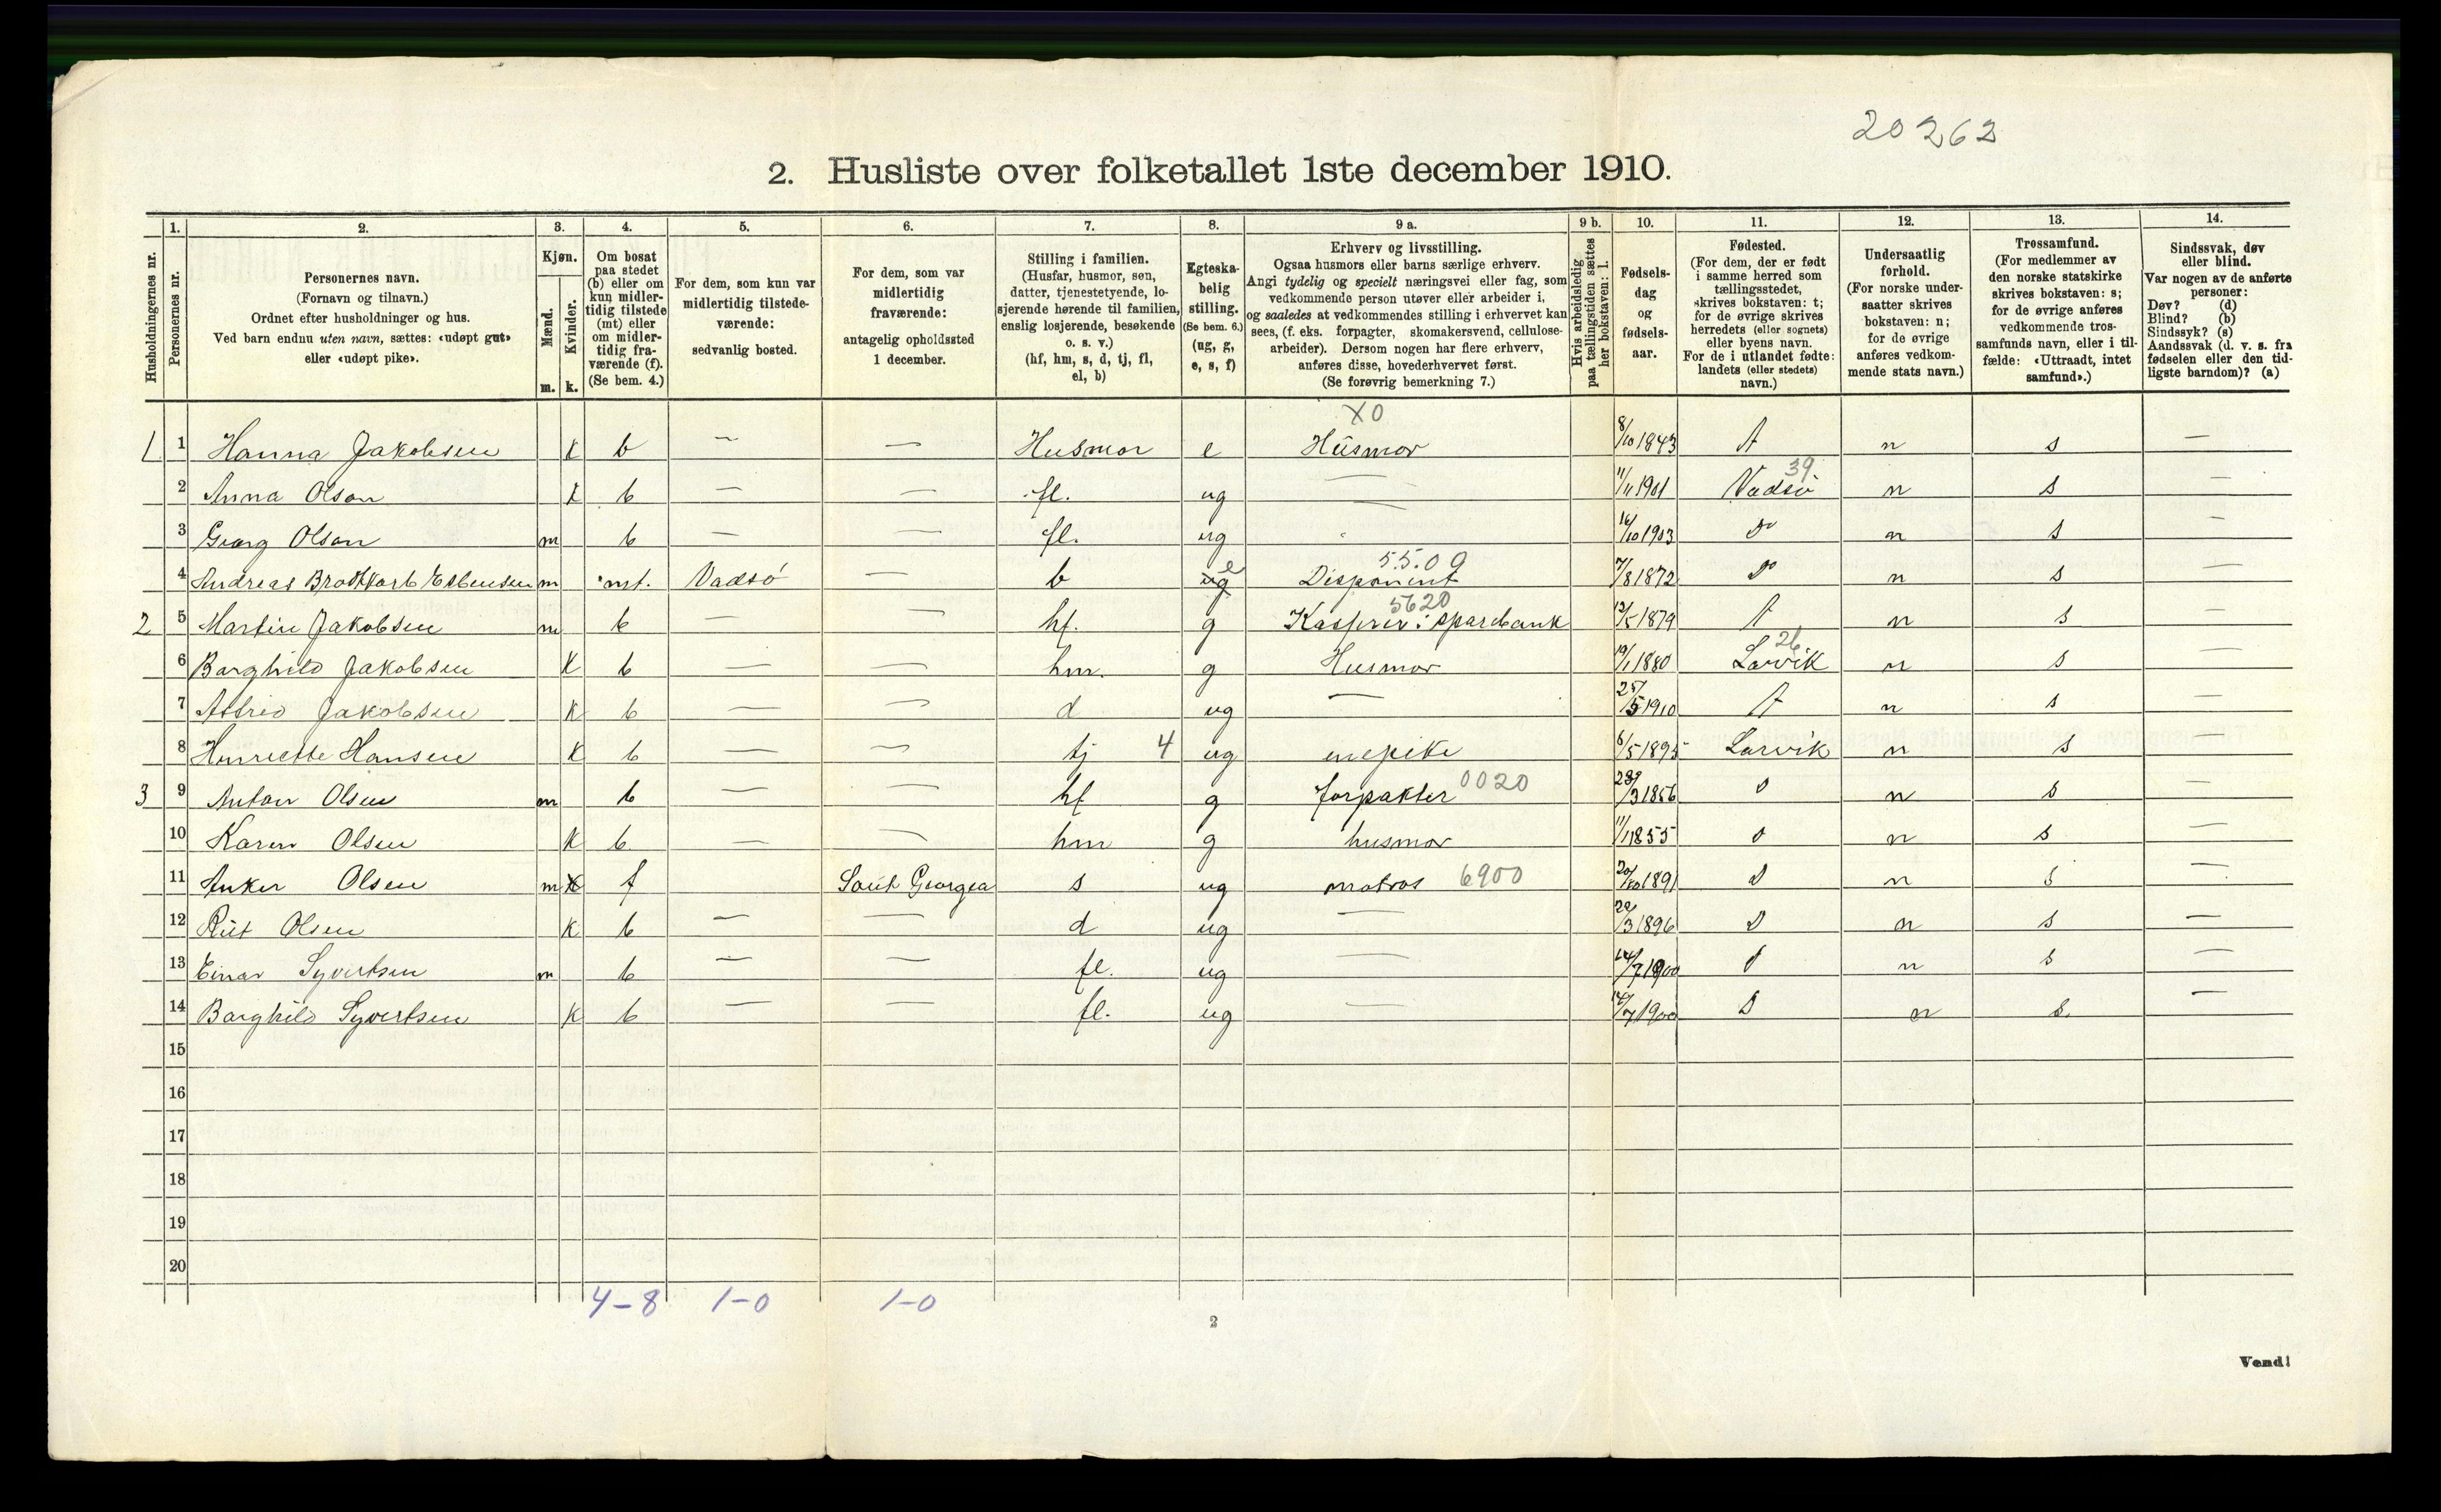 20262
2. Husliste over folketallet 1ste december 1910.
Husholdningernes nr.
1.
Personernes nr.
2.
Personernes navn.
(Fornavn og tilnavn.)
Ordnet efter husholdninger og hus.
Ved barn endnu uten navn, sættes: «udøpt gut»
eller «udøpt pike».
3.
Kjøn.
Mænd.
m.
Kvinder.
k.
4.
Om bosat
paa stedet
(b) eller om
kun midler-
tidig tilstede
(mt) eller
om midler-
tidig fra-
værende (f).
(Se bem. 4.)
5.
For dem, som kun var
midlertidig tilstede-
værende:
sedvanlig bosted.
6.
For dem, som var
midlertidig
fraværende:
antagelig opholdssted
1 december.
7.
Stilling i familien.
(Husfar, husmor, søn,
datter, tjenestetyende, lo-
sjerende hørende til familien,
enslig losjerende, besøkende
o. s. v.)
(hf, hm, s, d, tj, fl,
el, b)
8.
Egteska-
belig
stilling.
(Se bem. 6.)
(ug, g,
e, s, f)
9 a.
Erhverv og livsstilling.
Ogsaa husmors eller barns særlige erhverv.
Angi tydelig og specielt næringsvei eller fag, som
vedkommende person utøver eller arbeider i,
og saaledes at vedkommendes stilling i erhvervet kan
sees, (f. eks. forpagter, skomakersvend, cellulose-
arbeider). Dersom nogen har flere erhverv,
anføres disse, hovederhvervet først.
(Se forøvrig bemerkning 7.)
9 b.
Hvis arbeidsledig
paa tællingstiden sættes
her bokstaven: l.
10.
Fødsels-
dag
og
fødsels-
aar.
11.
Fødested.
(For dem, der er født
i samme herred som
tællingsstedet,
skrives bokstaven: t;
for de øvrige skrives
herredets (eller sognets)
eller byens navn.
For de i utlandet fødte:
landets (eller stedets)
navn.)
12.
Undersaatlig
forhold.
(For norske under-
saatter skrives
bokstaven: n;
for de øvrige
anføres vedkom-
mende stats navn.)
13.
Trossamfund.
(For medlemmer av
den norske statskirke
skrives bokstaven: s;
for de øvrige anføres
vedkommende tros-
samfunds navn, eller i til-
fælde: «Uttraadt, intet
samfund».)
14.
Sindssvak, døv
eller blind.
Var nogen av de anførte
personer:
Døv? (d)
Blind? (b)
Sindssyk? (s)
Aandssvak (d. v. s. fra
fødselen eller den tid-
ligste barndom)? (a)
X0
1 1 Hanna Jakobsen k b — — Husmor e Husmor 8/10 1843 n s —
39
2 Anna Olsen k b — — fl. ug — 11/11 1901 Vadsö n s —
3 Georg Olsen m b — — fl. ug 16/10 1903 Do n s —
5.5.09
4 Andreas Esbensen m mt. Vadsö — b e Disponent 7/8 1872 Do n s —
5620
2 5 Martin Jakobsen m b — — hf. g Kasserer i sparebank 12/5 1879 n s —
26
6 Borghild Jakobsen k b — — hm. g Husmor 19/1 1880 Larvik n s —
7 Astrid Jakobsen k b — — d ug — 25/5 1910 n s —
8 Henriette Hansen k b — — tj 4 ug enepike 6/5 1895 Larvik n s —
3 9 Anton Olsen m b — — hf g forpakter 0020 1856 n s —
10 Karen Olsen k b — — hm g husmor 11/1 1855 n s —
11 Anker Olsen m f Sout Georgea s ug matros 6900 20/10 1891 n s —
12 Rut Olsen k b — — d ug — 22/3 1896 n s —
13 Einar Syvertsen m b — — fl. ug — 14/7 1900 n s —
14 Borghild Syvertsen k b — — fl. ug — 14/7 1900 n s. —
15
16
17
18
19
20
4–8 1–0 1–0
2
Vend!